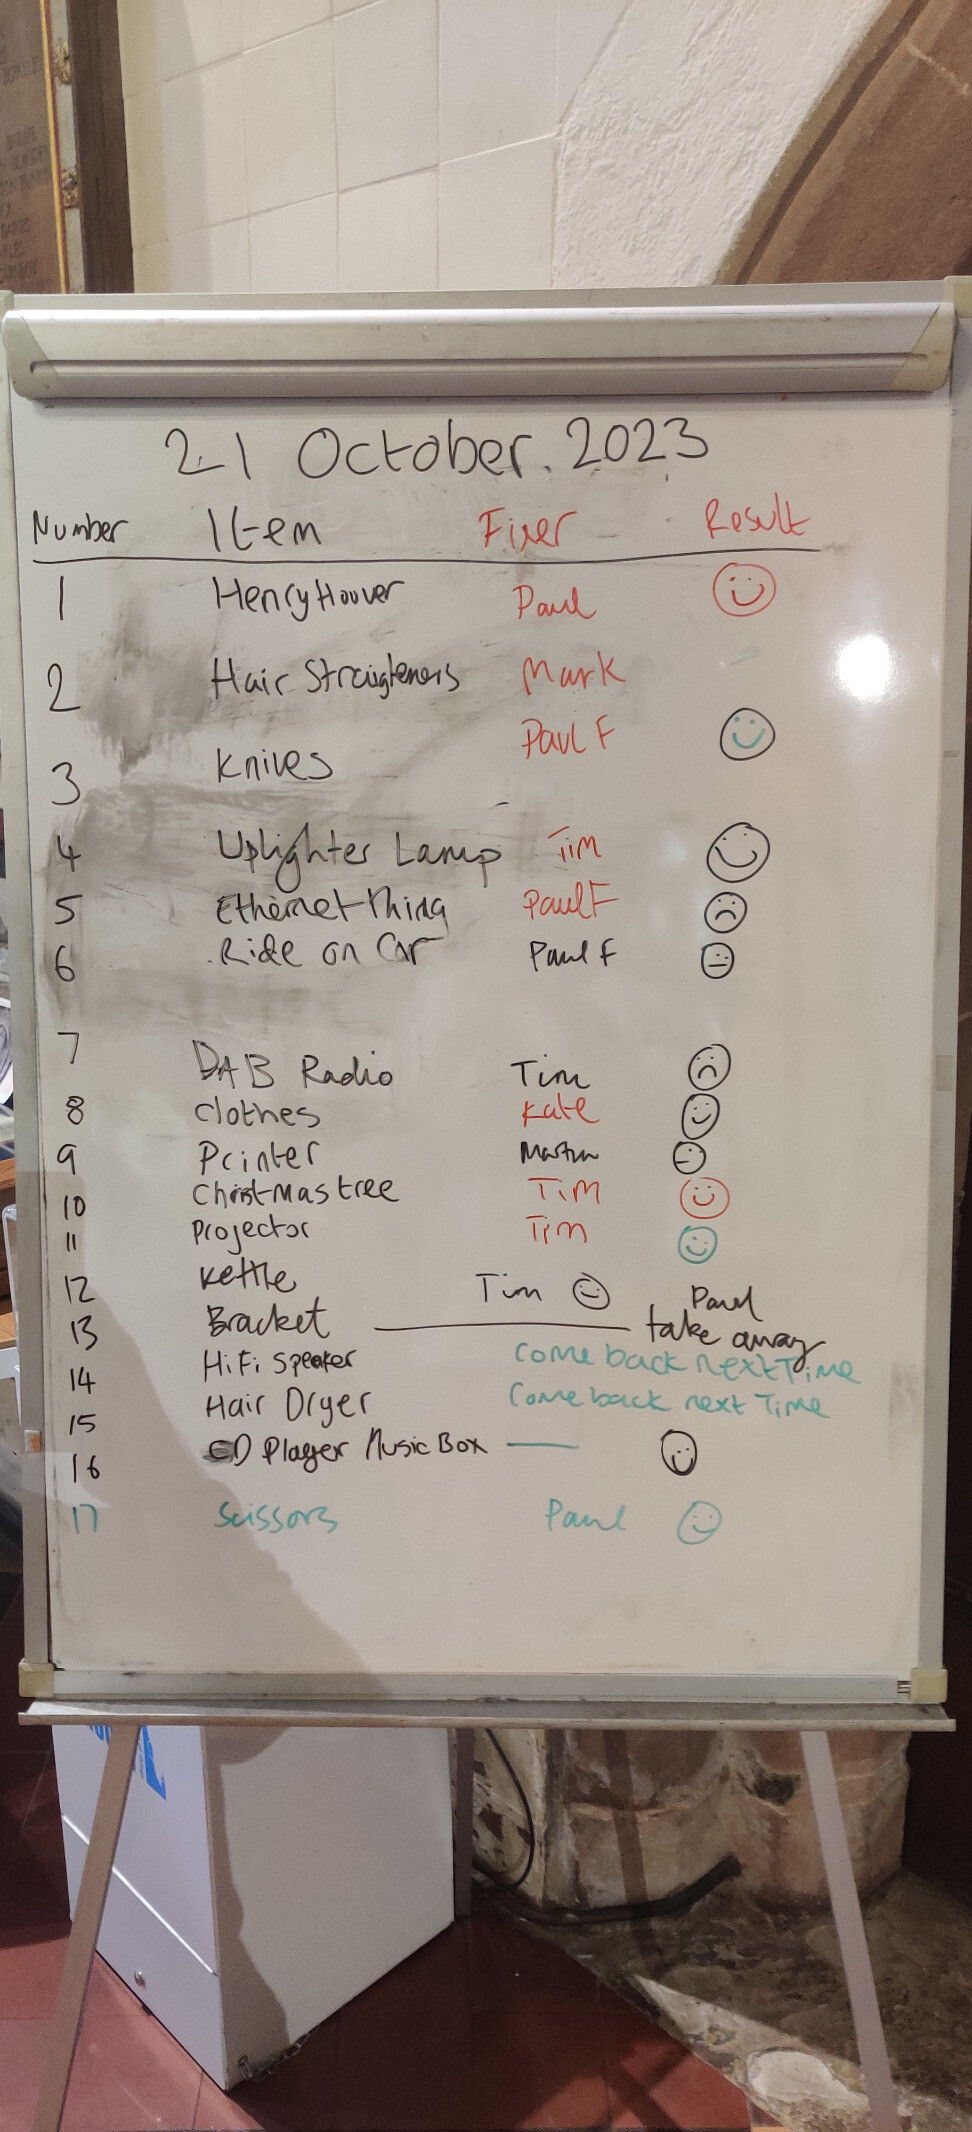 21 October. 2023
Number Item Fixer Result
1 Henry Hoover Paul
2 Hair Straigteners Mark
3 Knives Paul F
4 Uplighter Lamp Tim
5 Ethernet Thing Paul F
6 Ride on Car Paul F
7 DAB Radio Tim
8 Clothes Kate
9 Printer Martin
10 Christmas tree Tim
11 Projector Tim
12 Kettle Tim
13 Bracket Paul take away
14 HiFi Speaker Come back next Time
15 Hair Dryer Come back next Time
16 CD Player Music Box
17 Scissors Paul